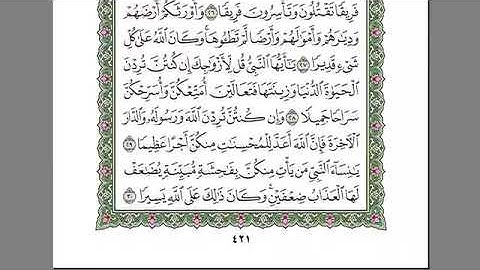 فَرِيقًا تَقْتُلُونَ وَتَأْسِرُونَ فَرِيقًا ٢٦ وَأَوْرَثَكُمْ أَرْضَهُمْ
وَدِيَٰرَهُمْ وَأَمْوَٰلَهُمْ وَأَرْضًا لَّمْ تَطَـُٔوهَا وَكَانَ ٱللَّهُ عَلَىٰ كُلِّ
شَىْءٍ قَدِيرًا ٢٧ يَٰٓأَيُّهَا ٱلنَّبِىُّ قُل لِّأَزْوَٰجِكَ إِن كُنتُنَّ تُرِدْنَ
ٱلْحَيَوٰةَ ٱلدُّنْيَا وَزِينَتَهَا فَتَعَالَيْنَ أُمَتِّعْكُنَّ وَأُسَرِّحْكُنَّ
سَرَاحًا جَمِيلًا ٢٨ وَإِن كُنتُنَّ تُرِدْنَ ٱللَّهَ وَرَسُولَهُۥ وَٱلدَّارَ
ٱلْـَٔاخِرَةَ فَإِنَّ ٱللَّهَ أَعَدَّ لِلْمُحْسِنَٰتِ مِنكُنَّ أَجْرًا عَظِيمًا ٢٩
يَٰنِسَآءَ ٱلنَّبِىِّ مَن يَأْتِ مِنكُنَّ بِفَٰحِشَةٍ مُّبَيِّنَةٍ يُضَٰعَفْ
لَهَا ٱلْعَذَابُ ضِعْفَيْنِ وَكَانَ ذَٰلِكَ عَلَى ٱللَّهِ يَسِيرًا ٣٠
٤٢١